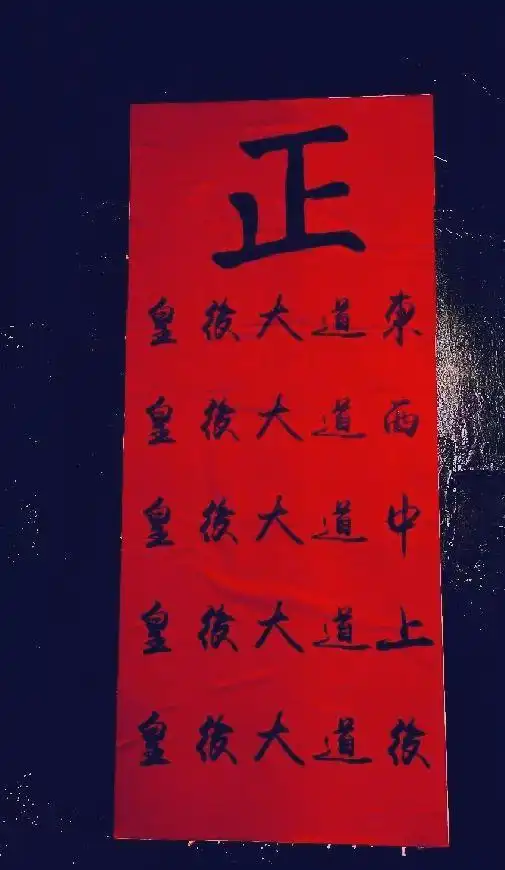 正
皇後大道東
皇後大道西
皇後大道中
皇後大道上
皇後大道後